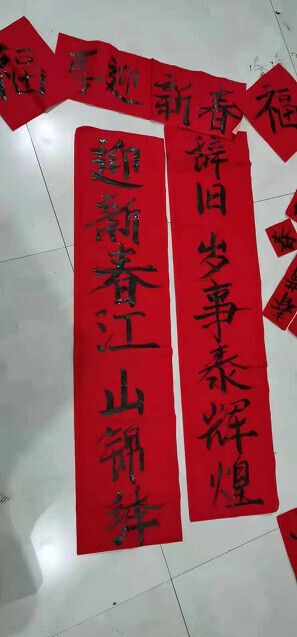 福
迎新春
福
辞旧岁事泰辉煌
迎新春江山锦绣
春